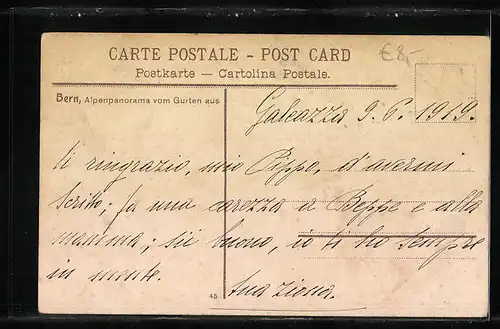 CARTE POSTALE - POST CARD
€ 8,-
Postkarte — Cartolina Postale.
Bern, Alpenpanorama vom Gurten aus
Galeazza 9. 6. 1919.
ti ringrazio, mio Pippo, d'avermi
scritto; fa una carezza a Beppe e alla
mamma; sii buono, io ti ho sempre
in mente.
tua ziona.
45